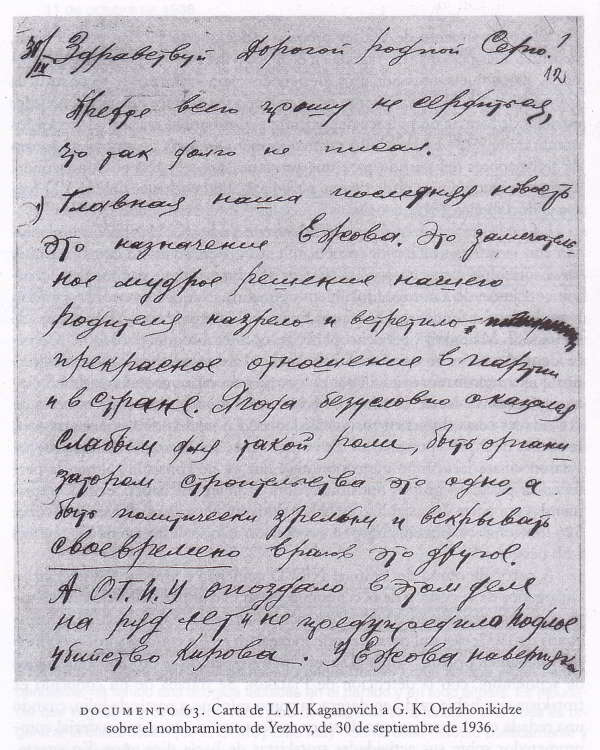 30/IX Здравствуй Дорогой родной Серго! 1
12
Прежде всего прошу не сердиться,
что так долго не писал.
1) Главная наша последняя новость
это назначение Ежова. Это замечатель-
ное мудрое решение нашего
родителя назрело и встретило
прекрасное отношение в партии
и в стране. Ягода безусловно оказался
слабым для такой роли, быть органи
затором строительства это одно, а
быть политически зрелым и вскрывать
своевремено врагов это другое.
А О.Г.П.У опоздало в этом деле
на ряд лет и не предупредило подлое
убийство Кирова. У Ежова наверняка
DOCUMENTO 63. Carta de L. M. Kaganovich a G. K. Ordzhonikidze
sobre el nombramiento de Yezhov, de 30 de septiembre de 1936.